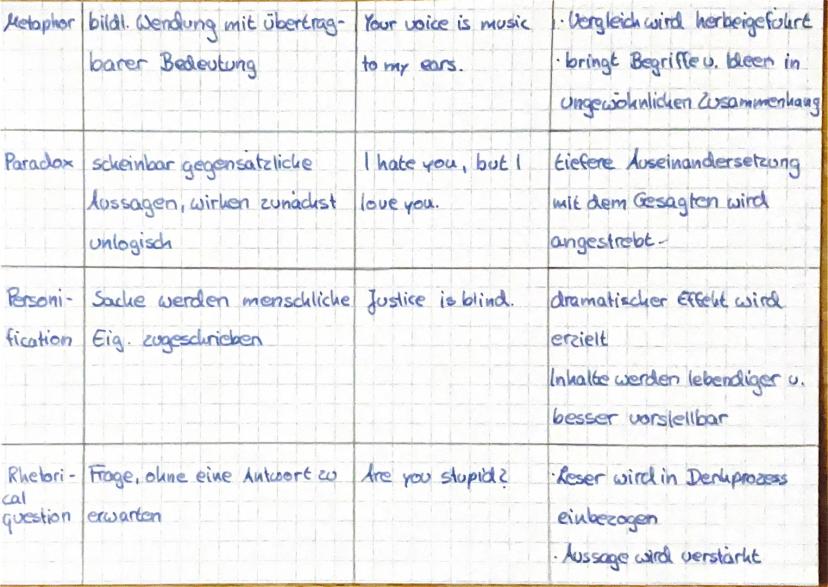 Metaphor
bildl. Wendung mit übertrag-
barer Bedeutung
Your voice is music
to my ears.
· Vergleich wird herbeigeführt
· bringt Begriffe u. Ideen in
ungewöhnlichen Zusammenhang
Paradox
scheinbar gegensätzliche
Aussagen, wirken zunächst
unlogisch
I hate you, but I
love you.
tiefere Auseinandersetzung
mit dem Gesagten wird
angestrebt-
Personi-
fication
Sache werden menschliche
Eig. zugeschrieben
Justice is blind.
dramatischer Effekt wird
erzielt
Inhalte werden lebendiger u.
besser vorstellbar
Rhetori-
cal
question
Frage, ohne eine Antwort zu
erwarten
Are you stupid?
· Leser wird in Denkprozess
einbezogen
· Aussage wird verstärkt